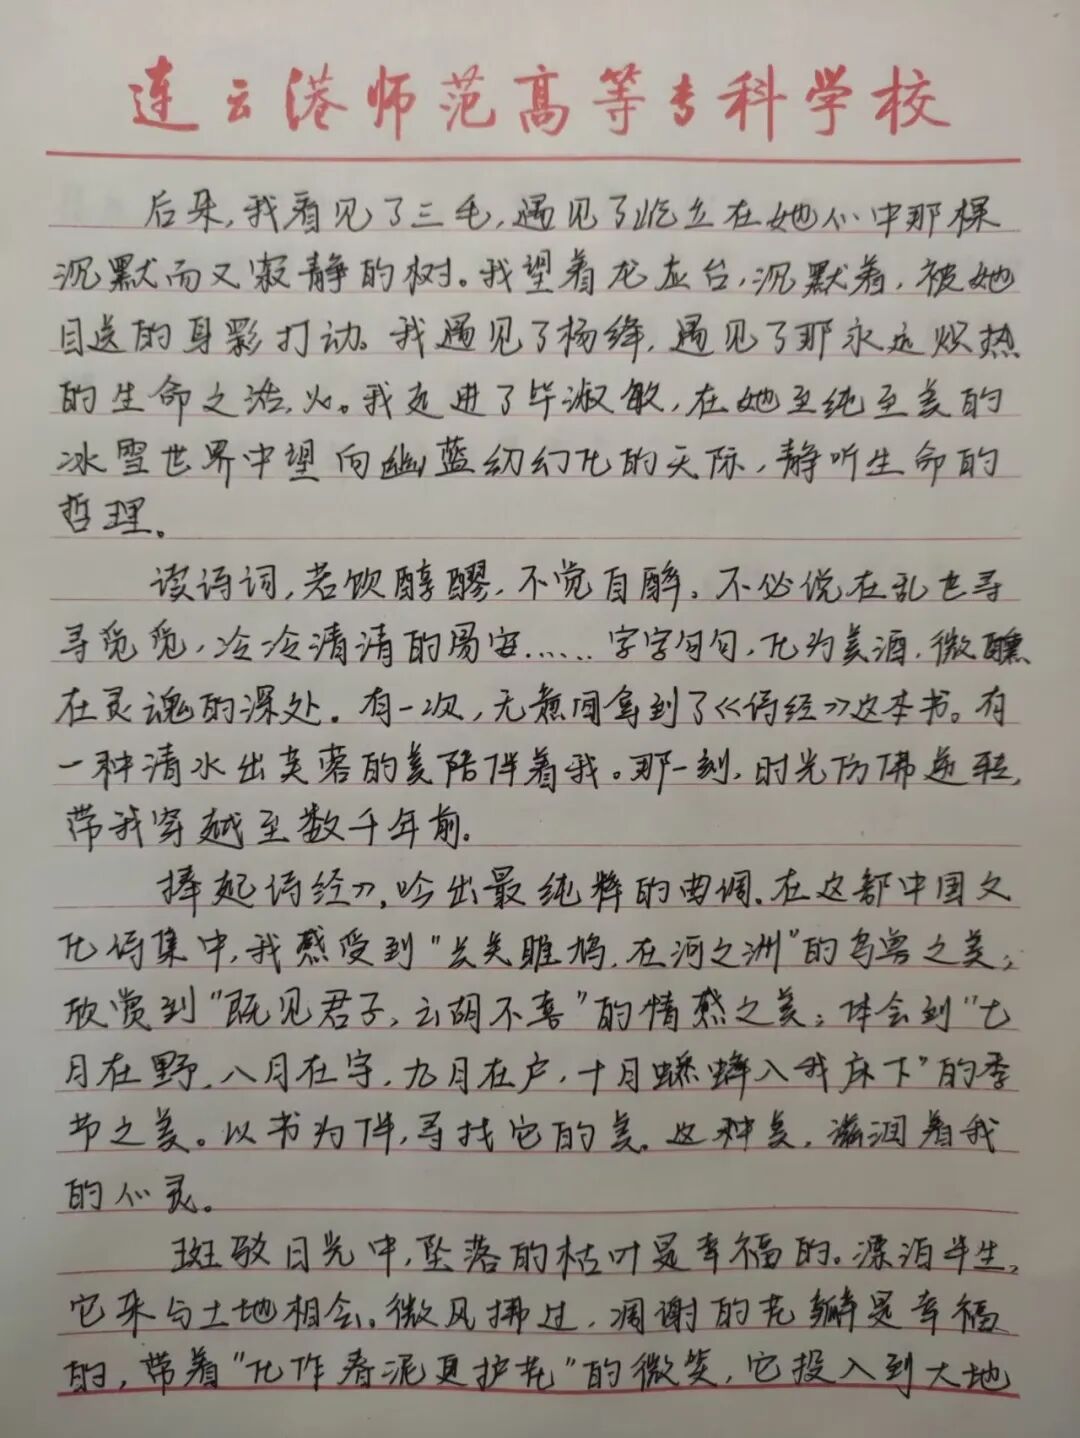 连云港师范高等专科学校
后来，我看见了三毛，遇见了屹立在她心中那棵
沉默而又寂静的树。我望着龙应台，沉默着，被她
目送的身影打动。我遇见了杨绛，遇见了那永远炽热
的生命之活火。我走进了毕淑敏，在她至纯至美的
冰雪世界中望向幽蓝幻化的天际，静听生命的
哲理。
读诗词，若饮醇醪，不觉自醉。不必说在乱世寻
寻觅觅，冷冷清清的易安……字字句句，化为美酒，微醺
在灵魂的深处。有一次，无意间拿到了《诗经》这本书。有
一种清水出芙蓉的美陪伴着我。那一刻，时光仿佛逆转，
带我穿越至数千年前。
捧起诗经》，吟出最纯粹的曲调。在这部中国文
化诗集中，我感受到“关关雎鸠，在河之洲”的鸟兽之美；
欣赏到“既见君子，云胡不喜”的情感之美；体会到“七
月在野，八月在宇，九月在户，十月蟋蟀入我床下”的季
节之美。以书为伴，寻找它的美。这种美，滋润着我
的心灵。
斑驳日光中，坠落的枯叶是幸福的。漂泊半生，
它来与土地相会。微风拂过，凋谢的花瓣是幸福
的，带着“化作春泥更护花”的微笑，它投入到大地